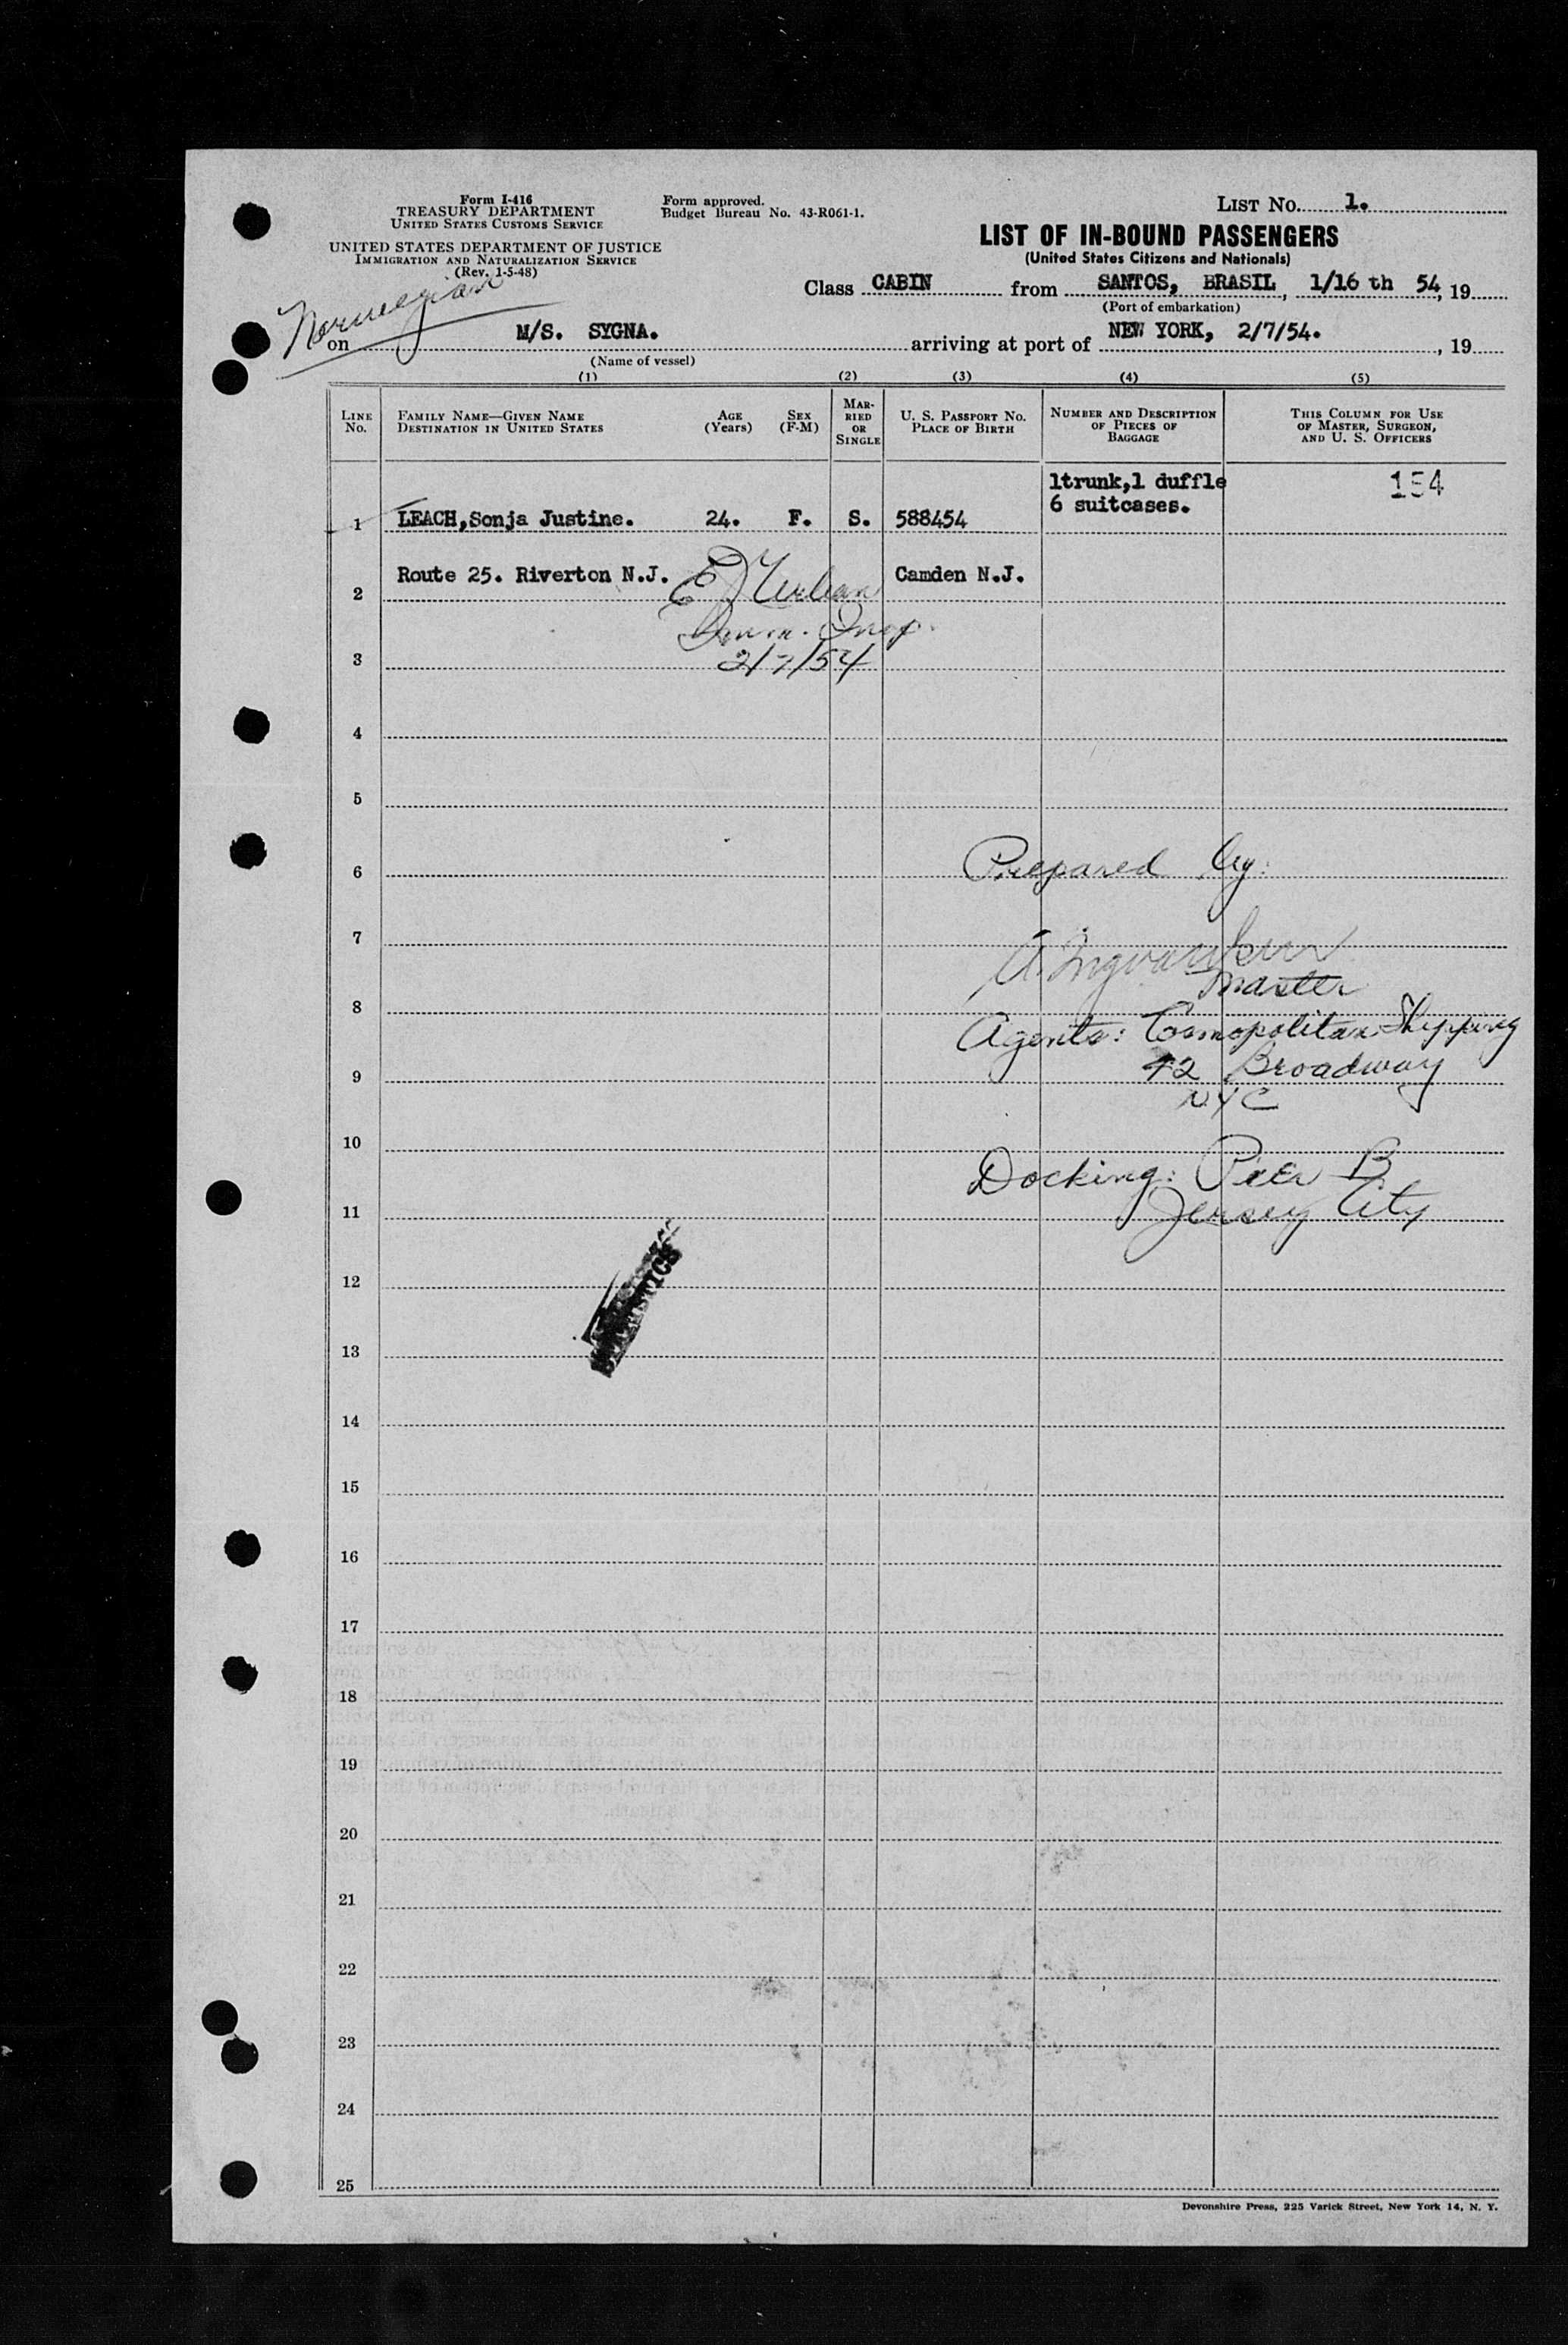 Form I-416
TREASURY DEPARTMENT
UNITED STATES CUSTOMS SERVICE
UNITED STATES DEPARTMENT OF JUSTICE
IMMIGRATION AND NATURALIZATION SERVICE
(Rev. 1-5-48)
Form approved.
Budget Bureau No. 43-R061-1.
LIST NO. 1.
LIST OF IN-BOUND PASSENGERS
(United States Citizens and Nationals)
Class CABIN from SANTOS, BRASIL, 1/16 th 54, 19
(Port of embarkation)
Norwegian
on M/S. SYGNA. arriving at port of NEW YORK, 2/7/54. , 19
(Name of vessel)
(1) (2) (3) (4) (5)
LINE NO.
FAMILY NAME—GIVEN NAME
DESTINATION IN UNITED STATES
AGE
(Years)
SEX
(F-M)
MAR-
RIED
OR
SINGLE
U. S. PASSPORT NO.
PLACE OF BIRTH
NUMBER AND DESCRIPTION
OF PIECES OF
BAGGAGE
THIS COLUMN FOR USE
OF MASTER, SURGEON,
AND U. S. OFFICERS
1trunk,1 duffle 154
6 suitcases.
1 LEACH,Sonja Justine. 24. F. S. 588454
2 Route 25. Riverton N.J. Camden N.J.
Imm. Insp.
3 2/7/54
4
5
6 Prepared by:
7
Master
8
Agents: Cosmopolitan Shipping
9 42 Broadway
NYC
10
Docking: Pier B
11 Jersey City
12
13
14
15
16
17
18
19
20
21
22
23
24
25
Devonshire Press, 225 Varick Street, New York 14, N. Y.